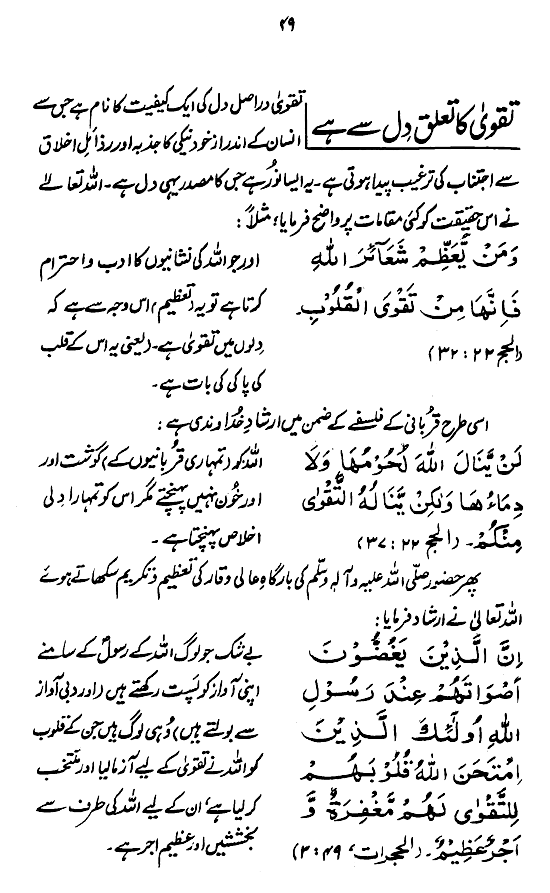 ۴۹
تقویٰ کا تعلق دِل سے ہے
تقویٰ دراصل دل کی ایک کیفیت کا نام ہے جس سے
انسان کے اندر از خود نیکی کا جذبہ اور رذائلِ اخلاق
سے اجتناب کی ترغیب پیدا ہوتی ہے۔ یہ ایسا نُور ہے جس کا مصدر یہی دل ہے۔ اللہ تعالےٰ
نے اس حقیقت کو کئی مقامات پر واضح فرمایا؛ مثلاً:
وَمَنْ يُّعَظِّمْ شَعَآئِرَ اللهِ
فَاِنَّهَا مِنْ تَقْوَى الْقُلُوْبِ۔
(الحج ۲۲ : ۳۲)
اور جو اللہ کی نشانیوں کا ادب و احترام
کرتا ہے تو یہ (تعظیم) اس وجہ سے ہے کہ
دِلوں میں تقویٰ ہے۔ (یعنی یہ اس کے قلب
کی پاکی کی بات ہے۔
اسی طرح قربانی کے فلسفے کے ضمن میں ارشادِ خُداوندی ہے:
لَنْ يَّنَالَ اللهَ لُحُوْمُهَا وَلَا
دِمَاءُهَا وَلٰكِنْ يَّنَالُهُ التَّقْوٰى
مِنْكُمْ۔ (الحج ۲۲ : ۳۷)
اللہ کو (تمہاری قربانیوں کے) گوشت اور
اور خُون نہیں پہنچتے مگر اس کو تمہارا دِلی
اخلاص پہنچتا ہے۔
پھر حضور صلّی اللہ علیہ وآلہٖ وسلّم کی بارگاہِ عالی وقار کی تعظیم و تکریم سکھاتے ہوئے
اللہ تعالیٰ نے ارشاد فرمایا:
اِنَّ الَّذِيْنَ يَغُضُّوْنَ
اَصْوَاتَهُمْ عِنْدَ رَسُوْلِ
اللهِ اُولٰٓئِكَ الَّذِيْنَ
امْتَحَنَ اللهُ قُلُوْبَهُمْ
لِلتَّقْوٰى لَهُمْ مَّغْفِرَةٌ وَّ
اَجْرٌ عَظِيْمٌ۔ (الحجرات، ۴۹ : ۳)
بے شک جو لوگ اللہ کے رسولؐ کے سامنے
اپنی آواز کو پست رکھتے ہیں (اور دبی آواز
سے بولتے ہیں) وُہی لوگ ہیں جن کے قلوب
کو اللہ نے تقویٰ کے لیے آزما لیا اور منتخب
کر لیا ہے، ان کے لیے اللہ کی طرف سے
بخششیں اور عظیم اجر ہے۔